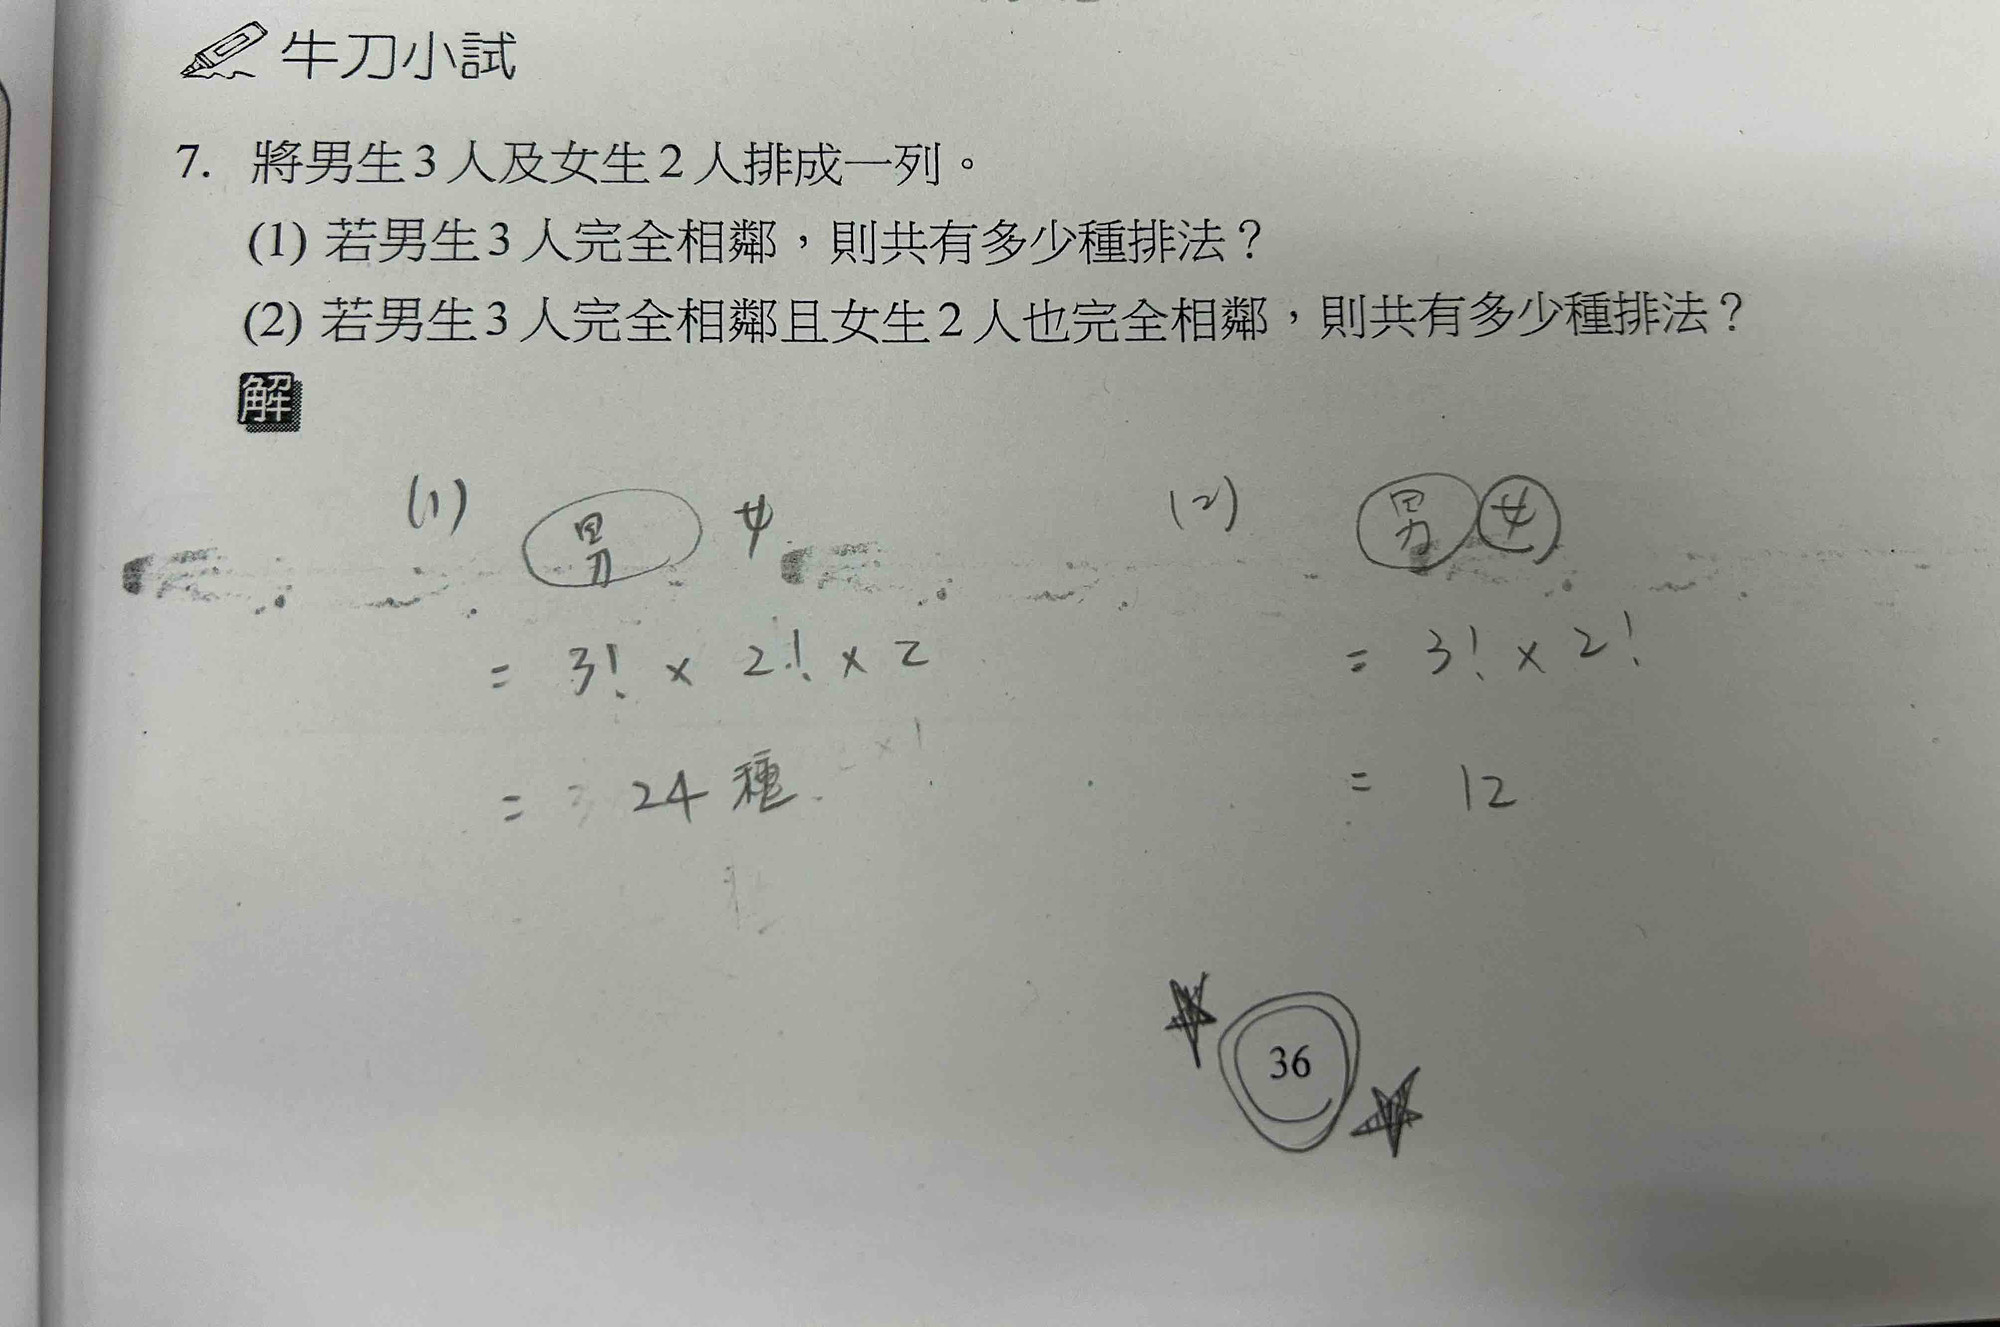 牛刀小試
7. 將男生3人及女生2人排成一列。
(1) 若男生3人完全相鄰，則共有多少種排法？
(2) 若男生3人完全相鄰且女生2人也完全相鄰，則共有多少種排法？
解
(1) 男 女
= 3! × 2! × 2
= 24 種
(2) 男 女
= 3! × 2!
= 12
36